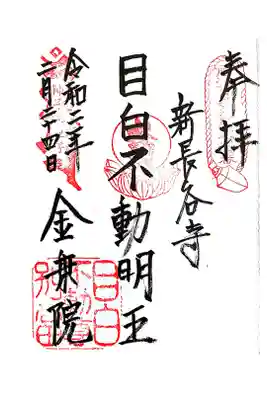 奉拝
新長谷寺
目白不動明王
金乗院
令和二年
二月二十四日